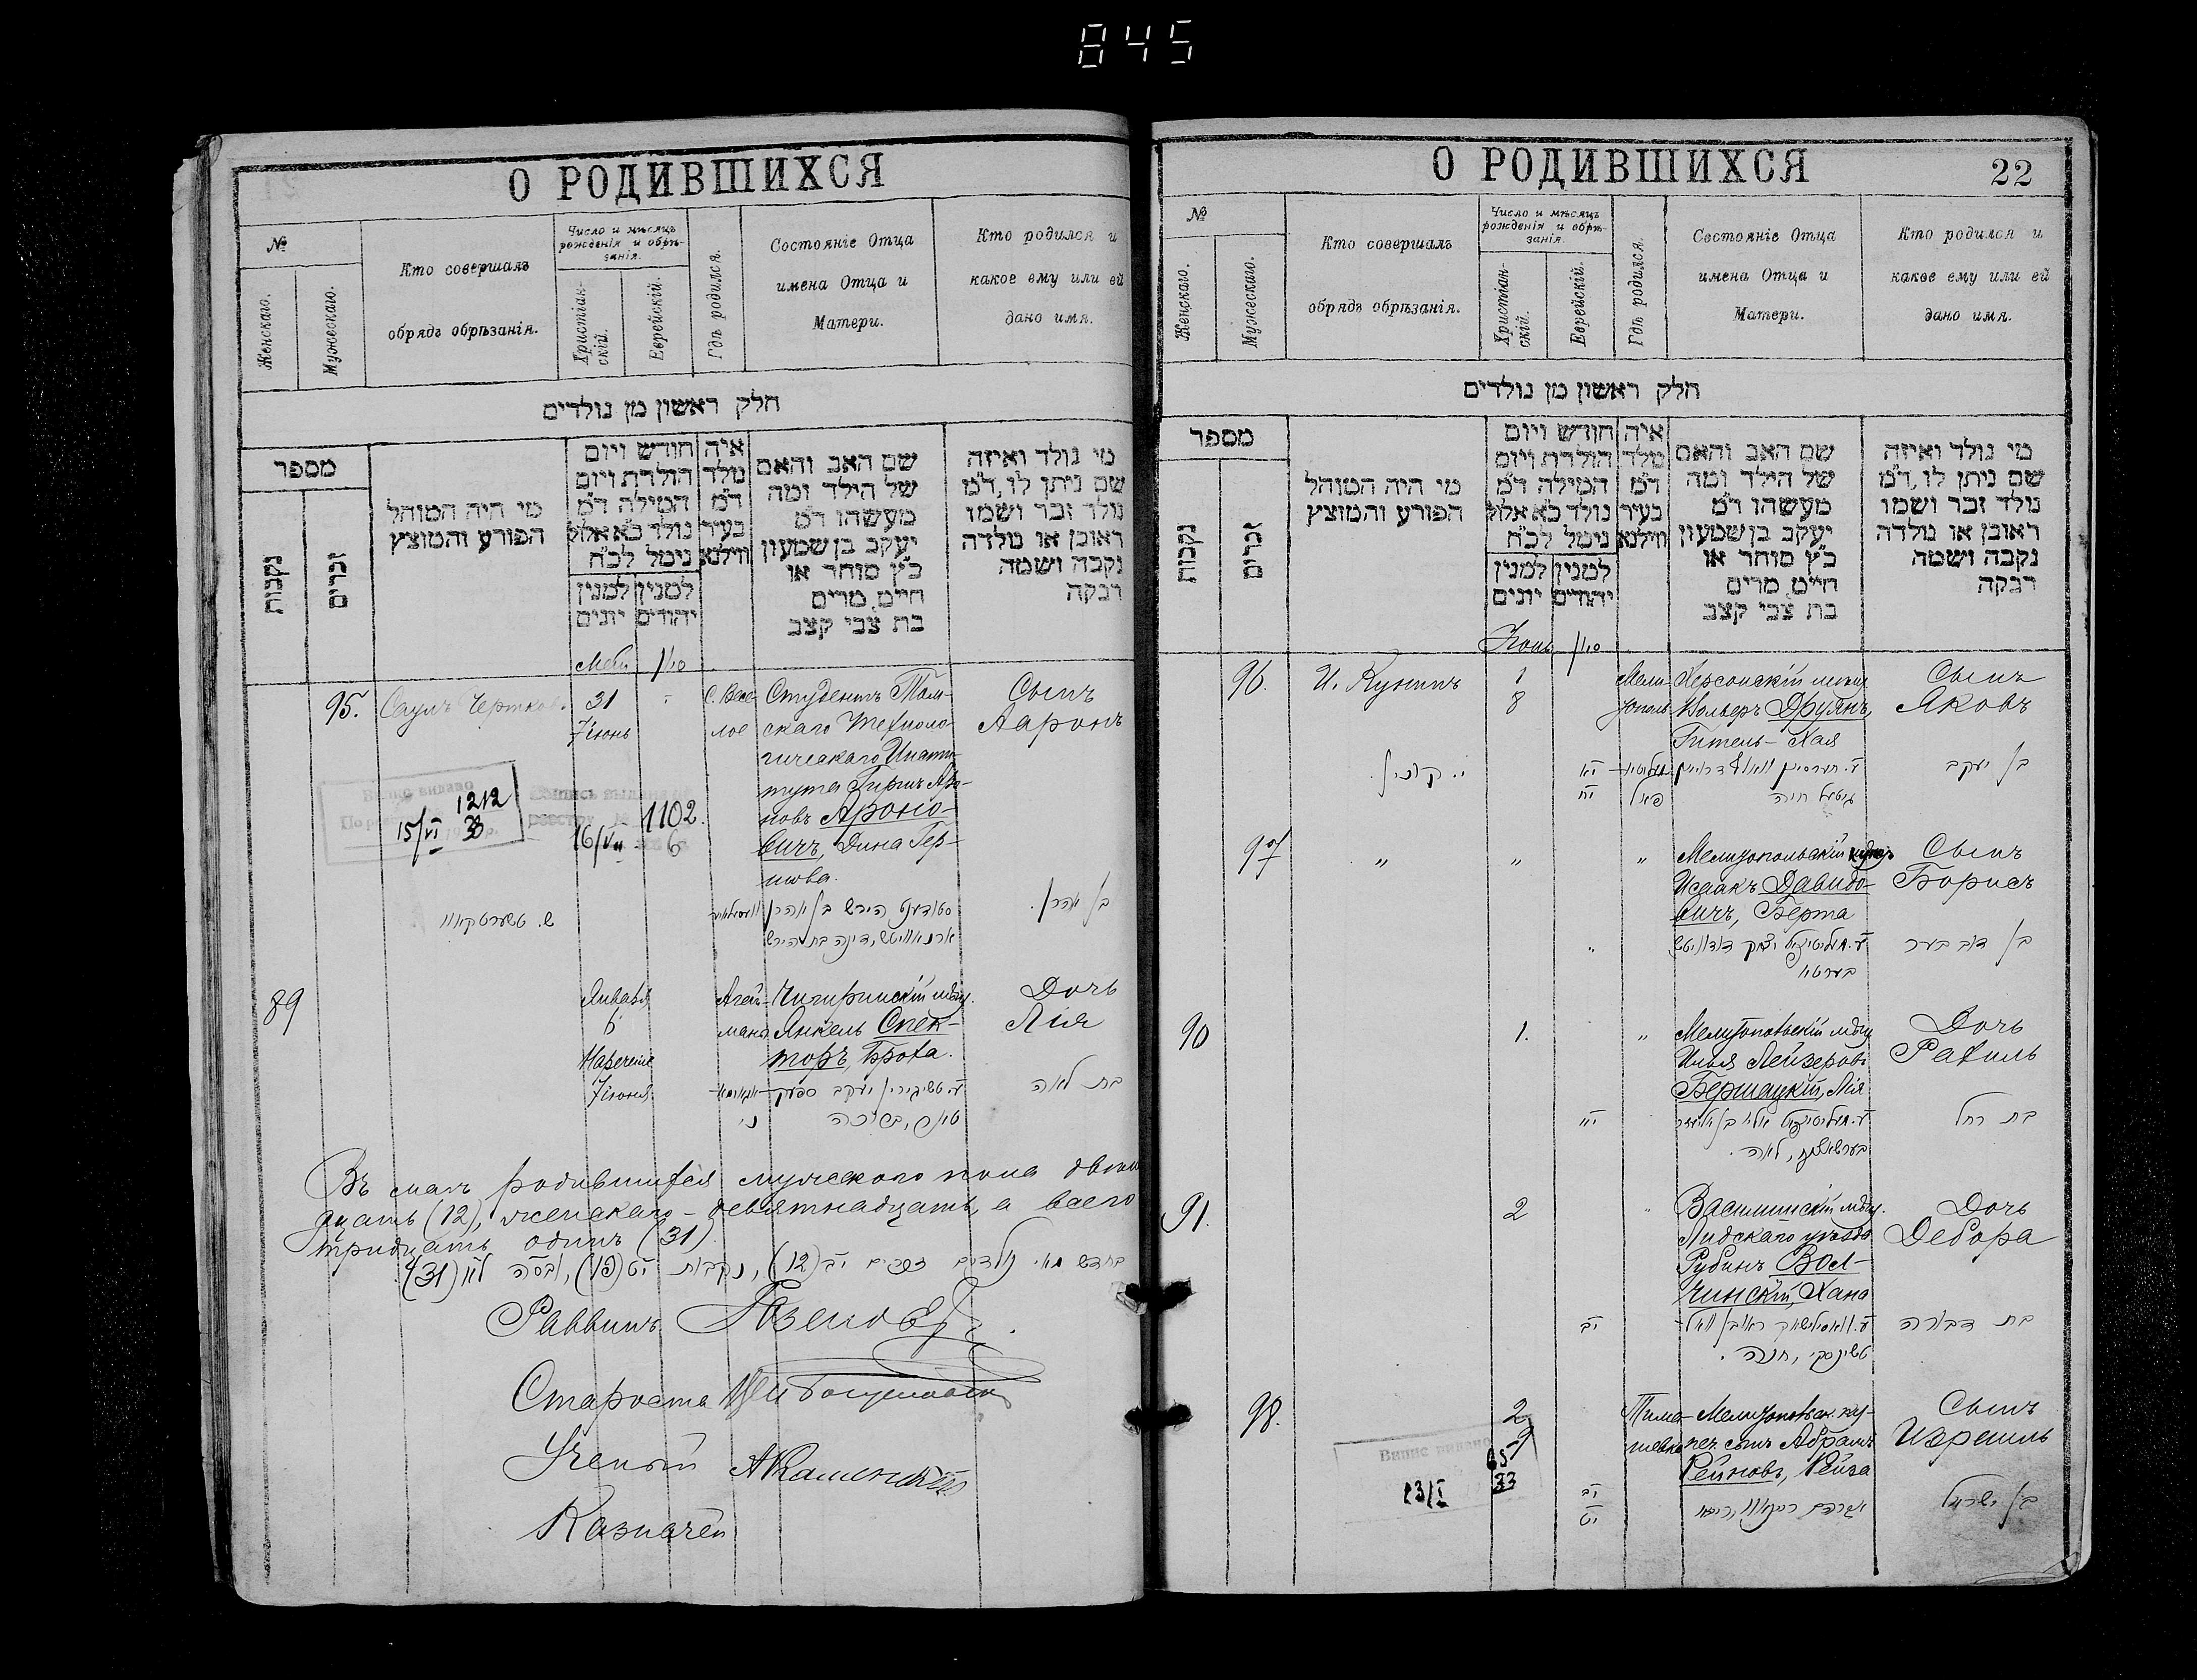 845
О РОДИВШИХСЯ
№
Женскаго.
Мужескаго.
Кто совершалъ
обрядъ обрѣзанія.
Число и мѣсяцъ
рожденія и обрѣ-
занія.
Христіан-
скій.
Еврейскій.
Гдѣ родился.
Состояніе Отца
имена Отца и
Матери.
Кто родился и
какое ему или ей
дано имя.
חלק ראשון מן נולדים
מספר
נקבות
זכרים
מי היה המוהל
הפורע והמוצץ
חודש ויום
הולדת ויום
המילה ד״מ
נולד כ״א אלול
נימל לכ״ח
למנין יהודים
למנין יונים
איה
נולד
ד״מ
בעיר
ווילנא
שם האב והאם
של הילד ומה
מעשהו ד״מ
יעקב בן שמעון
כ״ץ סוחר או
חייט, מרים
בת צבי קצב
מי נולד ואיזה
שם ניתן לו, ד״מ
נולד זכר ושמו
ראובן או נולדה
נקבה ושמה
רבקה
95.
Саулъ Чертков.
31
7 іюнь
С. Вес-
лое
Студентъ Том-
скаго Техноло-
гическаго Инсти-
тута Гиршъ Аро-
новъ Ароно-
вичъ, Дина Гер-
шова.
Сынъ
Ааронъ
1212
15/VI 33
16/VII
1102.
6
ש. טשערטקאוו
סטודענט הירש בן אהרן
בן אהרן.
89
Января
6
Наречение
7 іюня.
Агай-
маны
Чигиринскій мѣщ.
Янкель Спек-
торъ, Броха.
Дочь
Лія
בת לאה
Въ маѣ родившихся мужескаго пола двѣна-
дцать (12), женскаго – девятнадцать, а всего
тридцать одинъ (31).
Раввинъ
Староста
Ученый А Каменскій
Казначей
О РОДИВШИХСЯ
22
№
Женскаго.
Мужескаго.
Кто совершалъ
обрядъ обрѣзанія.
Число и мѣсяцъ
рожденія и обрѣ-
занія.
Христіан-
скій.
Еврейскій.
Гдѣ родился.
Состояніе Отца
имена Отца и
Матери.
Кто родился и
какое ему или ей
дано имя.
חלק ראשון מן נולדים
מספר
נקבות
זכרים
מי היה המוהל
הפורע והמוצץ
חודש ויום
הולדת ויום
המילה ד״מ
נולד כ״א אלול
נימל לכ״ח
למנין יהודים
למנין יונים
איה
נולד
ד״מ
בעיר
ווילנא
שם האב והאם
של הילד ומה
מעשהו ד״מ
יעקב בן שמעון
כ״ץ סוחר או
חייט, מרים
בת צבי קצב
מי נולד ואיזה
שם ניתן לו, ד״מ
נולד זכר ושמו
ראובן או נולדה
נקבה ושמה
רבקה
Іюнь
סיון
96.
И. Кунинъ
1
8
Мели-
тополь
Херсонскій мѣщ.
Вольфъ Друянъ,
Гитель-Хая
Сынъ
Яковъ
בן יעקב
97
"
"
"
Мелитопольскій
Исаакъ Давидо-
вичъ, Берта
Сынъ
Борисъ
בן דוב בער
90
1.
"
Мелитопольскій мѣщ.
Илья Лейзеровъ
Бершацкій, Лія
Дочь
Рахиль
בת רחל
91.
2
"
Василишскій мѣщ.
Лидскаго уѣзда
Рубинъ Вол-
чинскій, Хана
Дочь
Дебора
בת דבורה
98.
2
9
Тимо-
шевка
Мелитопольск. ку-
печ. сынъ Абрамъ
Рейновъ, Рейза
Сынъ
Израиль
23/I
33
בן ישראל